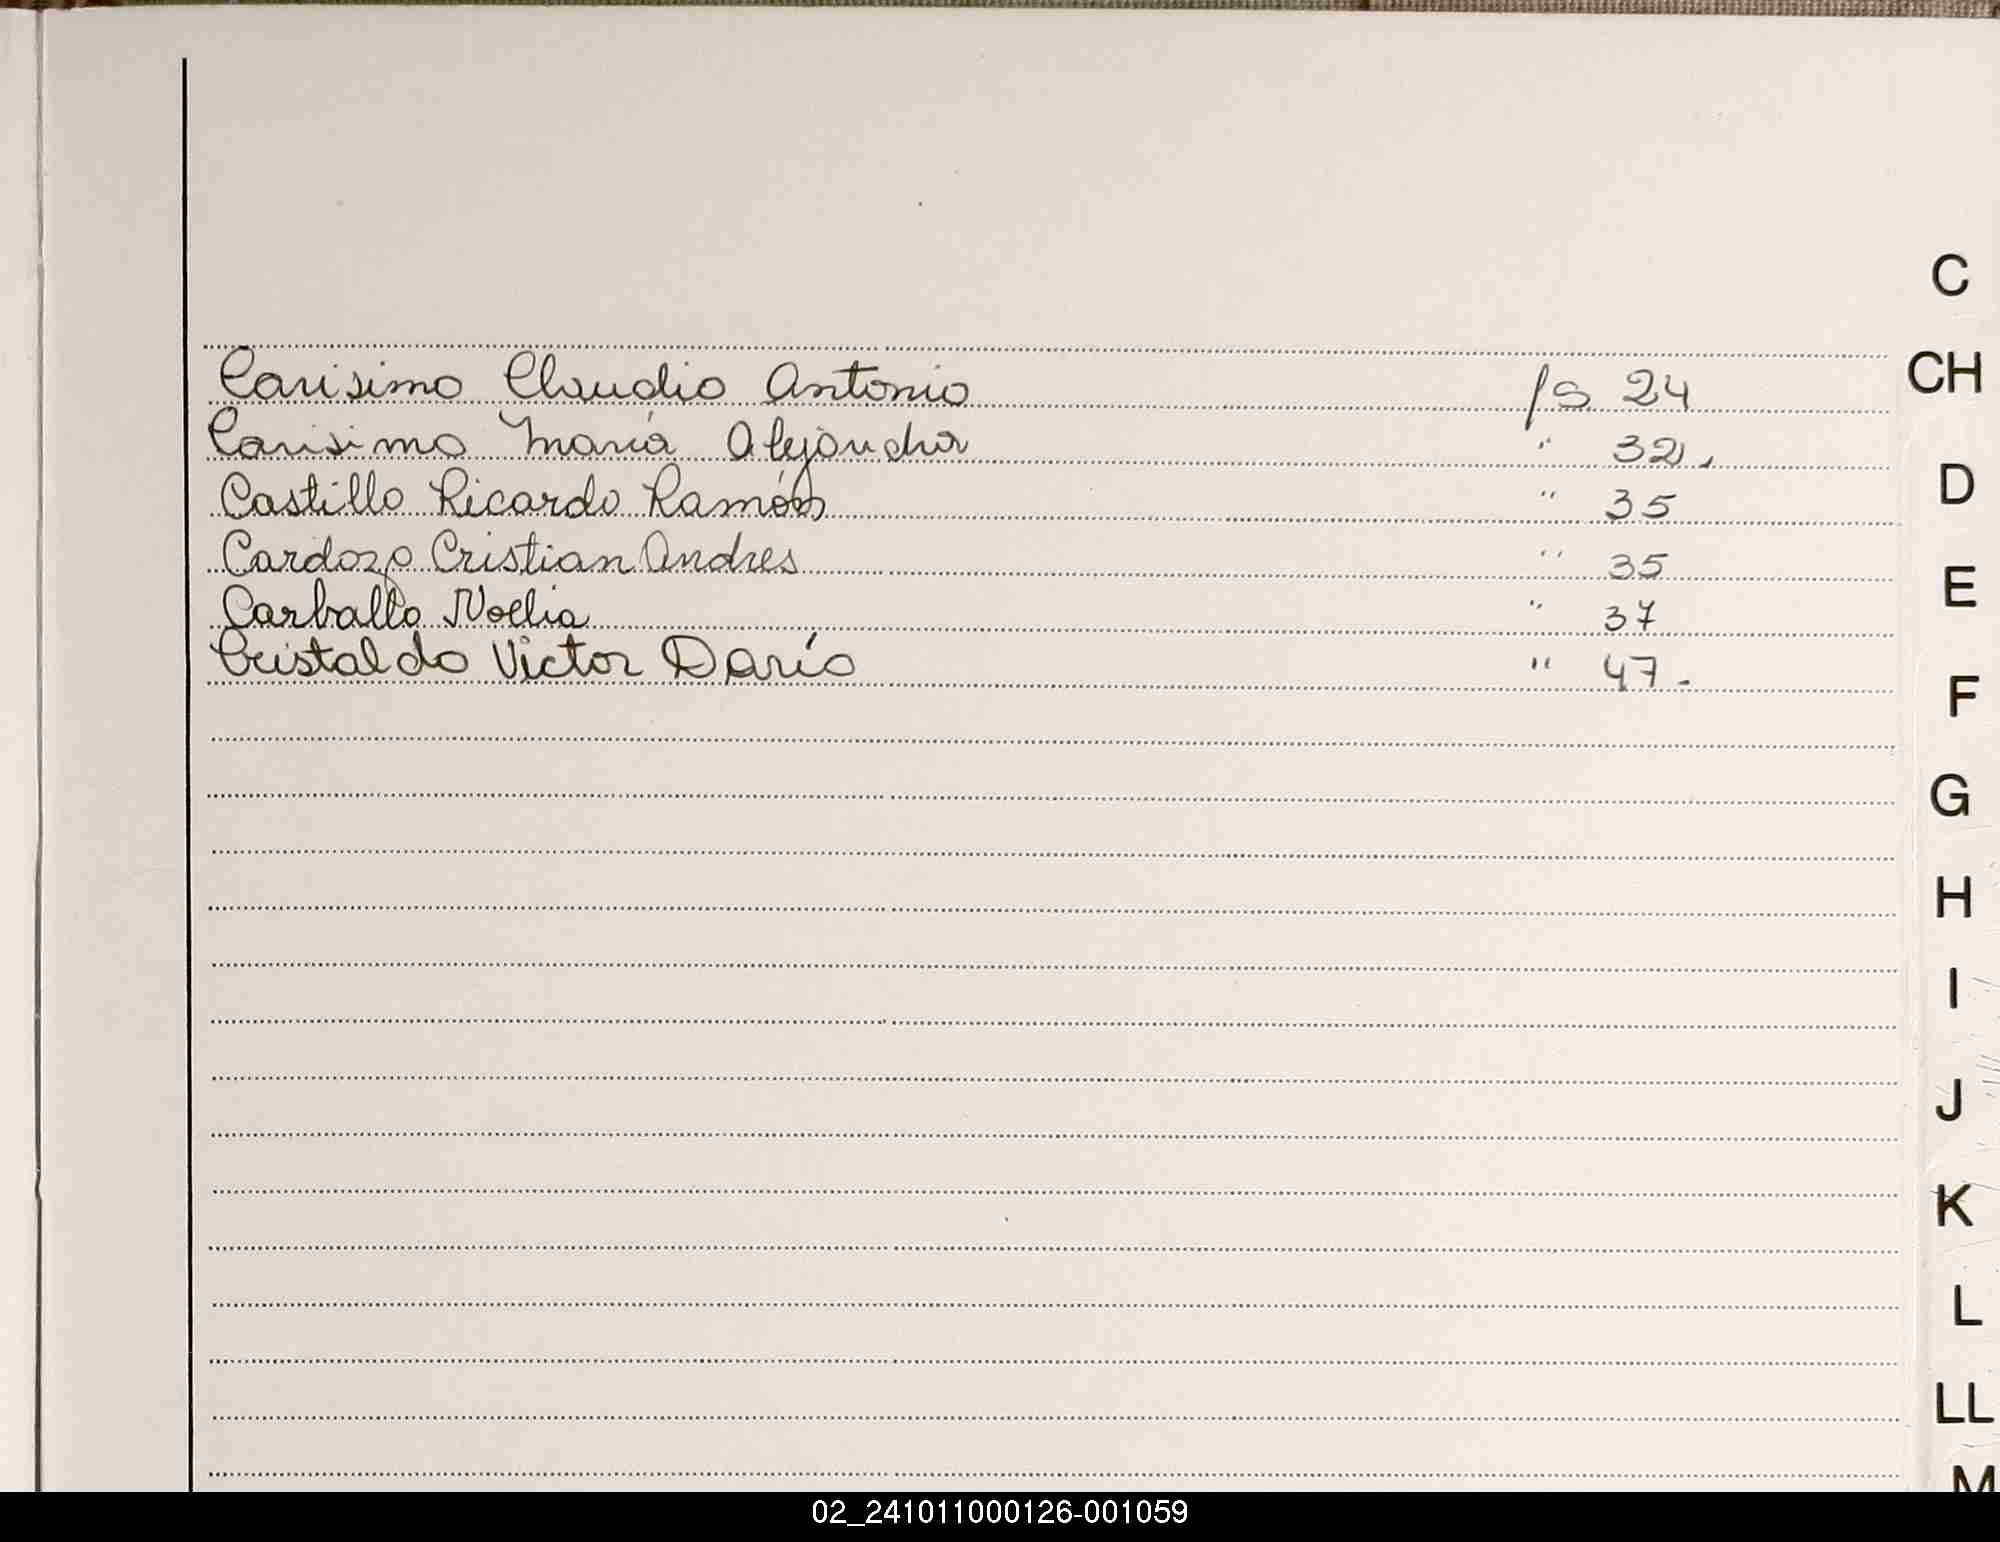 C
Carisimo Claudio Antonio fs 24
CH
Carisimo María Alejandra " 32.
Castillo Ricardo Ramón " 35
D
Cardozo Cristian Andres " 35
E
Carballo Noelia " 37
Cristaldo Victor Darío " 47.-
F
G
H
I
J
K
L
LL
M
02_241011000126-001059